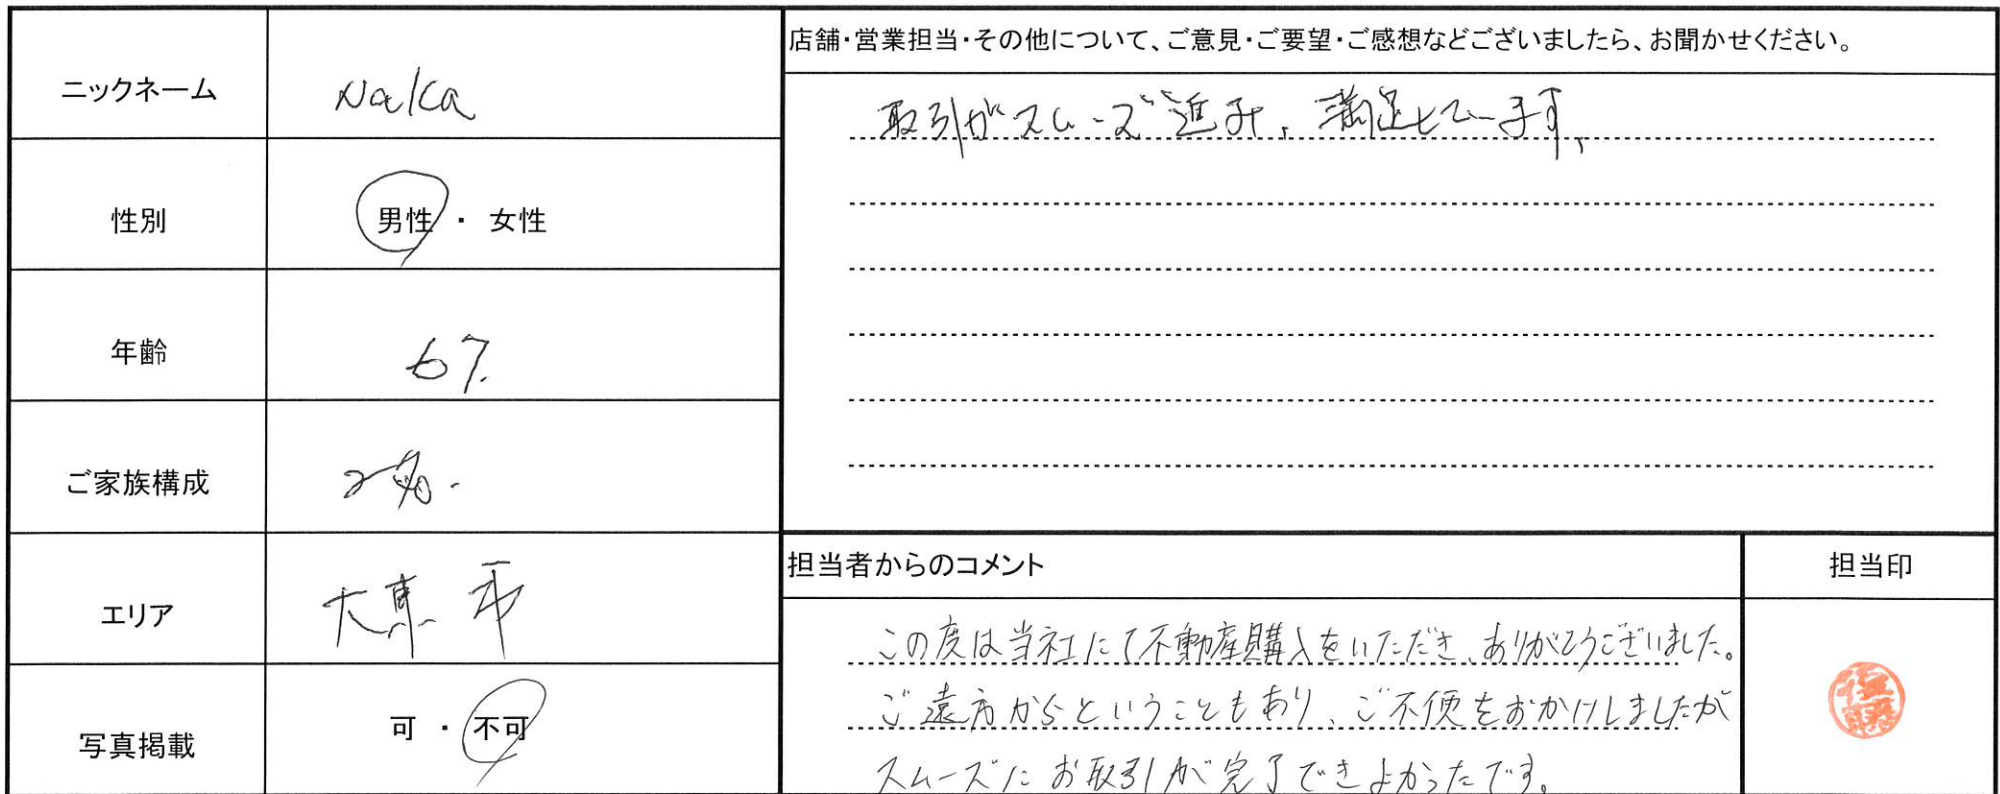 ニックネーム Naka
性別 男性 ・ 女性
年齢 67.
ご家族構成
エリア 大東市
写真掲載 可 ・ 不可
店舗・営業担当・その他について、ご意見・ご要望・ご感想などございましたら、お聞かせください。
取引がスムーズ進み、満足しています、
担当者からのコメント
この度は当社にて不動産購入をいただき、ありがとうございました。
ご遠方からということもあり、ご不便をおかけしましたが
スムーズにお取引が完了できよかったです。
担当印
佐藤